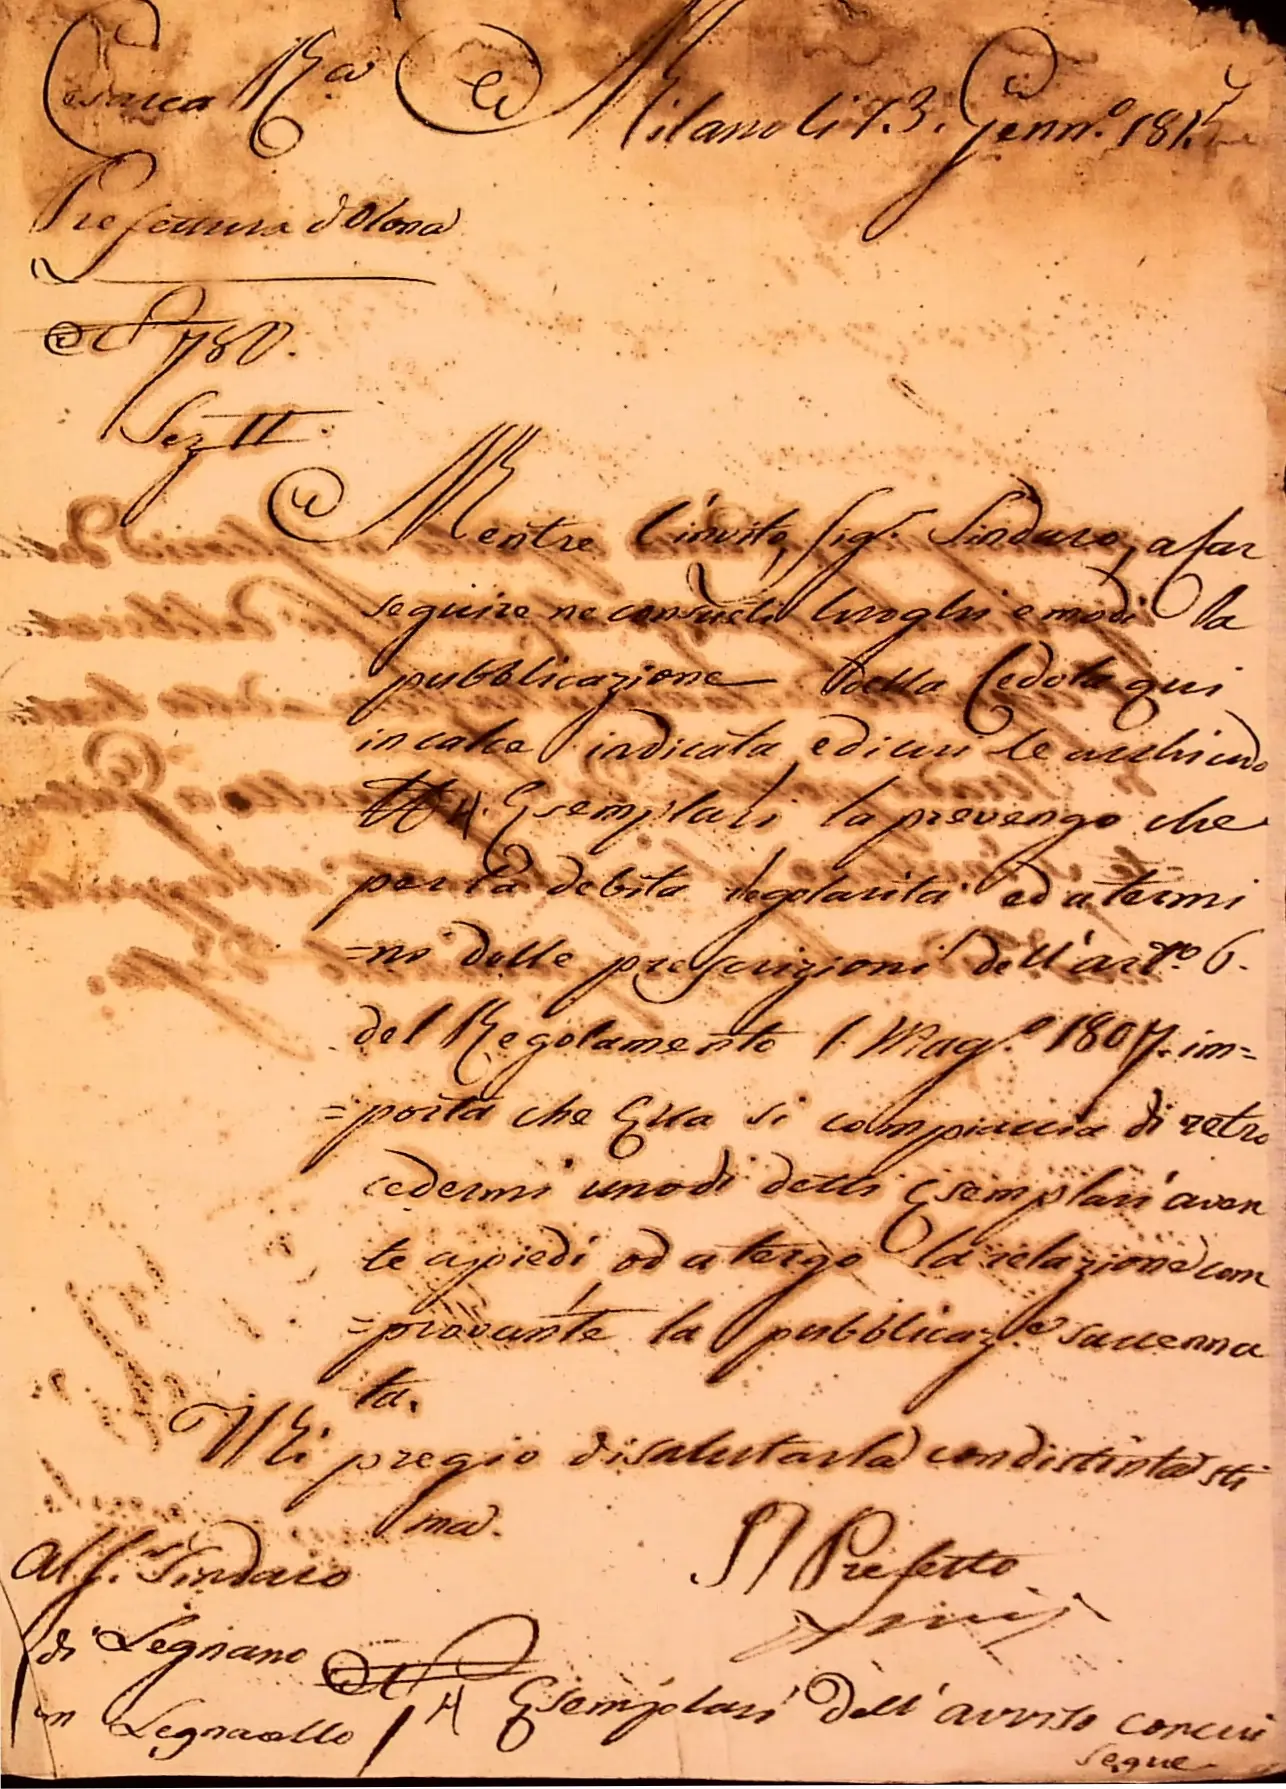 Cesarea R.a Milano li 13. Genn.o 181
Prefettura d'Olona
N 780.
Sez II.
Mentre l'invito, Sig.r Sindaco, a far
seguire ne consueti luoghi e modi la
pubblicazione della Cedola qui
in calce indicata, e di cui le acchiudo
N 4. Esemplari la prevengo che
per la debita regolarità ed a termi
=ni delle prescrizioni dell'art.o 6.
del Regolamento 1. Mag.o 1807. im=
=porta che Ella si compiaccia di retro
cedermi uno di detti Esemplari aven
te a piedi od a tergo la relazione com
=provante la pubblicaz.e accenna
ta.
Mi pregio di salutarla con distinta sti
ma.
Il Prefetto
Al S.r Sindaco
di Legnano
in Legnarello
N 4 Esemplari dell'avviso
segue